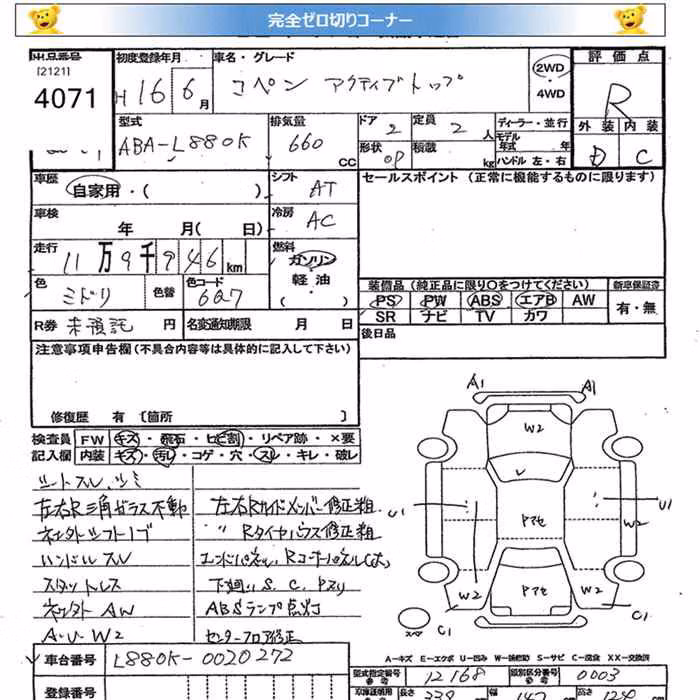 完全ゼロ切りコーナー
出品番号
[2121]
4071
初度登録年月
H 16 6 月
車名・グレード
コペン アクティブトップ
2WD
4WD
評価点
R
外装 内装
D C
型式
ABA-L880K
排気量
660 cc
ドア 2
形状 OP
定員 2 人
積載 kg
ディーラー・並行
モデル年式 年
ハンドル 左・右
車歴
自家用・( )
シフト
AT
セールスポイント (正常に機能するものに限ります)
車検
年 月( 日)
冷房
AC
走行
11万9千946km
燃料
ガソリン
軽油
( )
色
ミドリ
色替
色コード
6Q7
装備品 (純正品に限り○をつけてください)
新車保証書
PS PW ABS エアB AW
SR ナビ TV カワ
有・無
R券 未預託 円
名変通知期限 月 日
後日品
注意事項申告欄(不具合内容等は具体的に記入して下さい)
修復歴 有 [箇所 ]
検査員 FW キズ・飛石・ヒビ割・リペア跡・×要
記入欄 内装 キズ・汚レ・コゲ・穴・スレ・キレ・破レ
シートスレ、シミ
左右R三角ガラス不動
ハンドルスレ
スタットレス
AW
A・U・W2
左右Rサイドメンバー修正粗
〃 Rタイヤハウス修正粗
エンドパネル、Rコーナーパネル
下廻りS、C、Pスリ
ABSランプ点灯
センターフロア修正
A1 A1
W2
U1
Pマセ
U1
W2
W2
Pマセ
W2
C1
C1
スペア
A-キズ E-エクボ U-凹み W-補修跡 S-サビ C-腐食 XX-交換済
車台番号
L880K-0020272
型式指定番号
12168
類別区分番号
0003
登録番号
長さ
339
幅
147
高さ